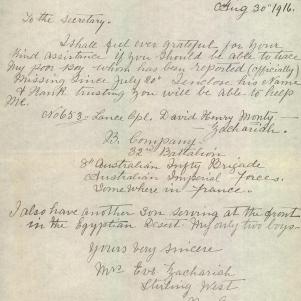 Aug 30th 1916.
To the Secretary.
I shall feel ever grateful for your
kind assistance if you should be able to trace
my poor boy - who has been reported (officially)
Missing since July 20th I enclose his name
& Rank trusting you will be able to help
Me.
No 653 - Lance Cpl. David Henry Monty -
Zachariah.
B. Company
32nd Battalion
8th Australian Infty Brigade
Australian Imperial Forces.
Somewhere in France.
I also have another Son serving at the front
in the Egyptian Desert. My only two boys -
Yours Very Sincere
Mrs Eve Zachariah
Stirling West